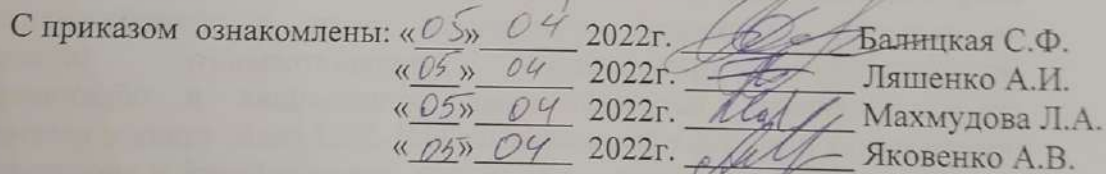 С приказом ознакомлены: «05» 04 2022г. Балицкая С.Ф.
«05» 04 2022г. Ляшенко А.И.
«05» 04 2022г. Махмудова Л.А.
«05» 04 2022г. Яковенко А.В.